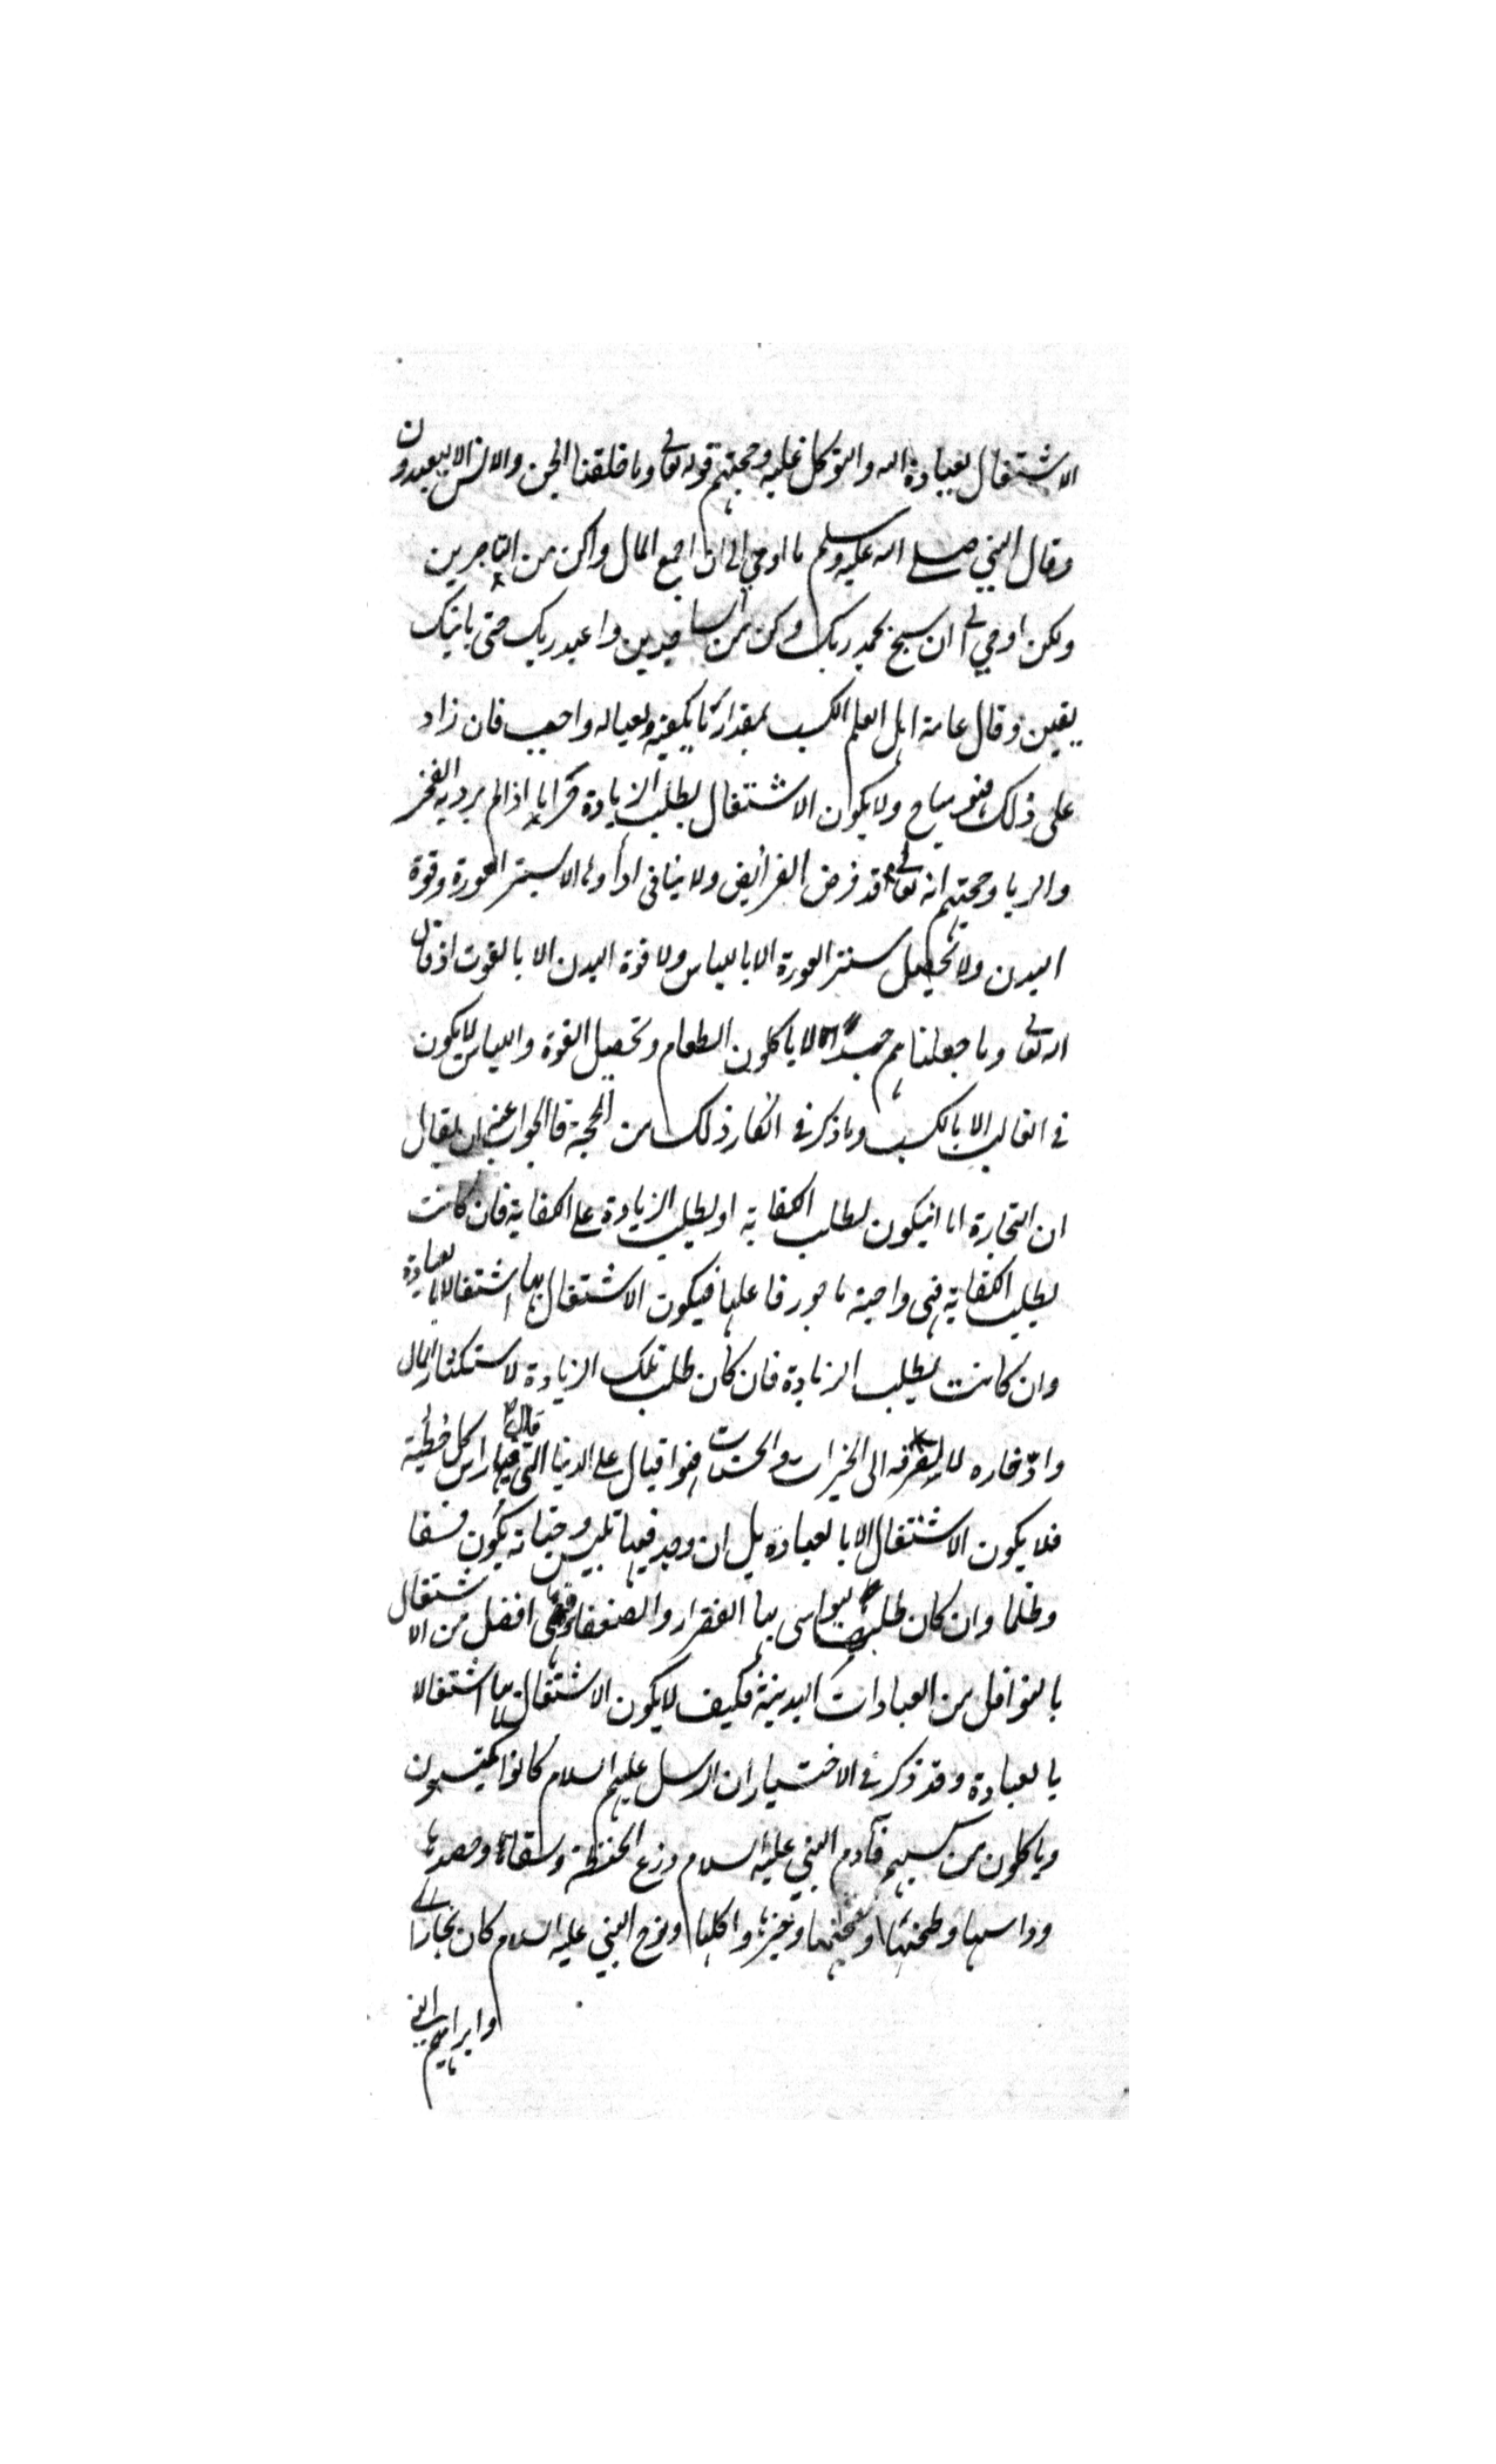 الاشتغال بعبادة الله والتوكل عليه وحجتهم قوله تعالى وما خلقنا الجن والانس الا ليعبدون
وقال النبي صلى الله عليه وسلم ما اوحي الي ان اجمع المال واكن من التاجرين
ولكن اوحي الي ان سبح بحمد ربك وكن من الساجدين واعبد ربك حتى ياتيك
يقين وقال عامة اهل العلم الكسب بمقدار ما يكفيه ولعياله واجب فان زاد
على ذلك فهو مباح ولا يكون الاشتغال بطلب الزيادة حراما اذا لم يرد به الفخر
والريا وحجتهم انه تعالى قد فرض الفرائض ولا يتافى اداؤها الا بستر العورة وقوة
البدن ولا تحصيل ستر العورة الا باللباس ولا قوة البدن الا بالقوت اذ قال
الله تعالى وما جعلناهم جسدا لا ياكلون الطعام وتحصيل القوة واللباس لا يكون
في الغالب الا بالكسب وما ذكر في انكار ذلك من الحجة فالجواب عنه ان يقال
ان التجارة اما انيكون لطلب الكفاية او لطلب الزيادة على الكفاية فان كانت
لطلب الكفاية فهي واجبة ماجور فاعلها فيكون الاشتغال بها اشتغالا بالعبادة
وان كانت لطلب الزيادة فان كان طلب تلك الزيادة لاستكثار المال
وادخاره لا لصرفه الى الخيرات والحسنات فهو اقبال على الدنيا التي قال فيها راس كل خطيئة
فلا يكون الاشتغال الا بالعبادة بل ان وجد فيها تلبيس وخيانة يكون فسقا
وظلما وان كان طلبها ليواسي بها الفقراء والضعفاء فهي افضل من الاشتغال
بالنوافل من العبادات البدنية فكيف لا يكون الاشتغال بها اشتغالا
بالعبادة وقد ذكر في الاختيار ان الرسل عليهم السلام كانوا يكتسبون
وياكلون من كسبهم فآدم النبي عليه السلام زرع الحنطة وسقاها وحصدها
وداسها وطحنها وعجنها وخبزها واكلها ونوح النبي عليه السلام كان نجارا
وابراهيم النبي